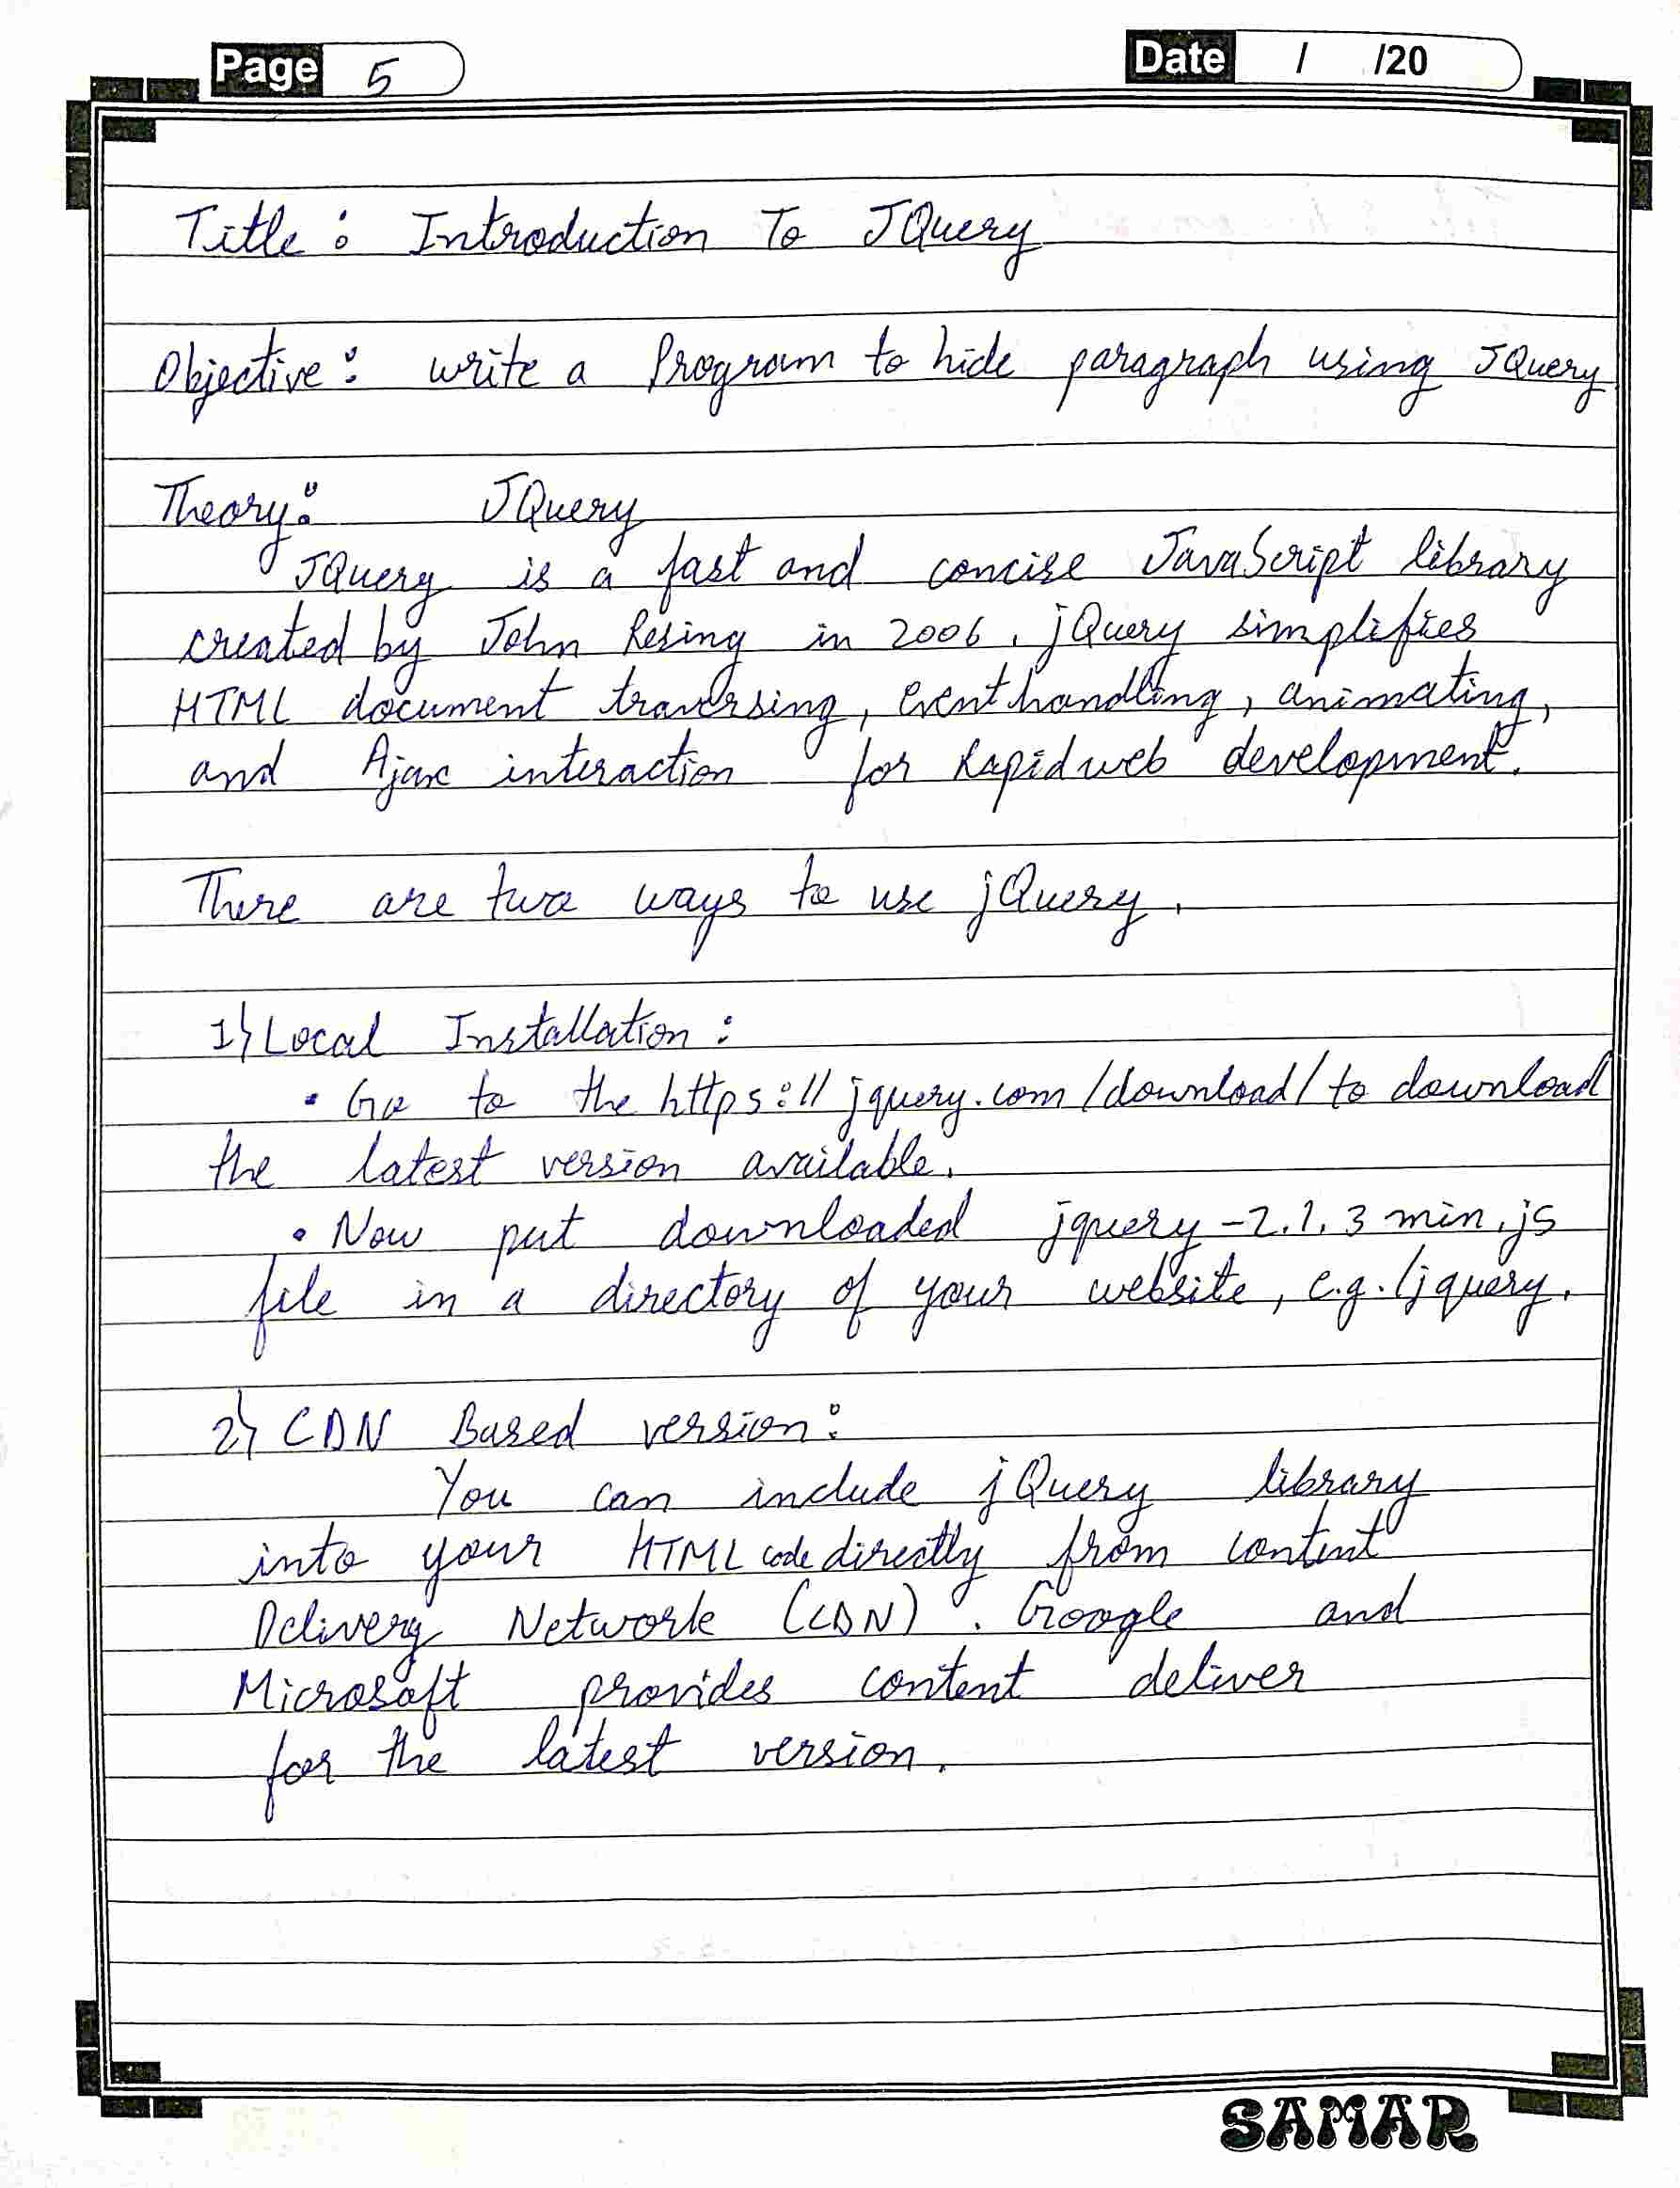 Page 5
Date / /20
Title : Introduction To JQuery
Objective : write a Program to hide paragraph using JQuery
Theory : JQuery
JQuery is a fast and concise JavaScript library
created by John Resing in 2006. jQuery simplifies
HTML document traversing, event handling, animating,
and Ajax interaction for Rapid web development.
There are two ways to use jQuery.
1) Local Installation :
• Go to the https://jquery.com/download/ to download
the latest version available.
• Now put downloaded jquery-2.1.3 min.js
file in a directory of your website, e.g. /jquery.
2) CDN Based version :
You can include jQuery library
into your HTML code directly from content
Delivery Network (CDN). Google and
Microsoft provides content deliver
for the latest version.
SAMAR